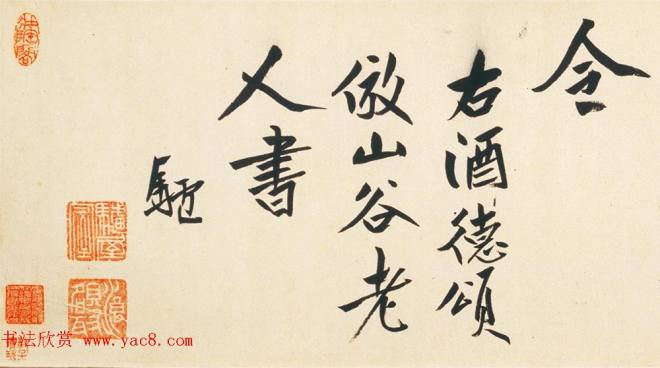 令
右酒德頌
倣山谷老
人書
駔
书法欣赏 www.yac8.com